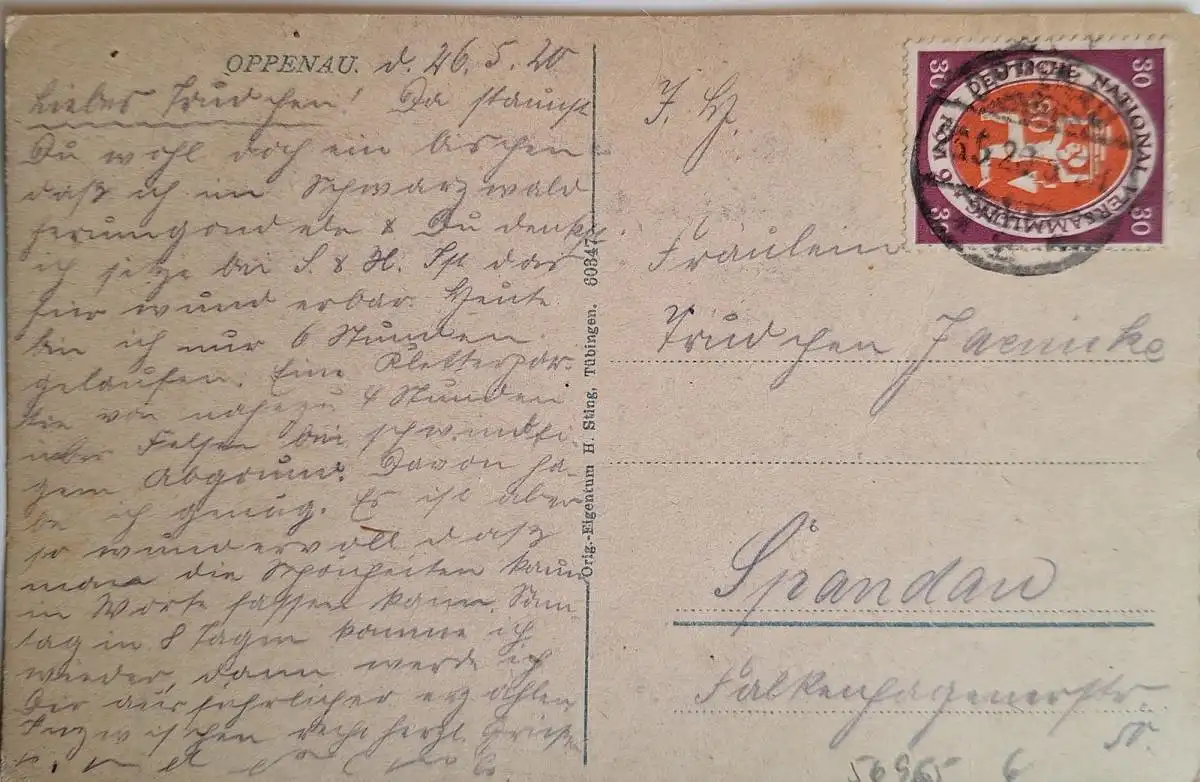 OPPENAU. d. 26. 5. 20
Liebes Trudchen! Da staunst
Du wohl doch ein bischen
daß ich im Schwarzwald
herumgondele & Du denkst
ich sitze bei S & H. Ist das
hier wunderbar. Heute
bin ich nur 6 Stunden
gelaufen. Eine Kletterpar-
tie von nahezu 4 Stunden
über Felsen bei schwindli-
gem Abgrund. Davon ha-
be ich genug. Es ist aber
so wundervoll daß
man die Schönheiten kaum
in Worte fassen kann. Sonn-
tag in 8 Tagen komme ich
wieder, dann werde ich
Dir ausführlicher erzählen
Inzwischen recht herzl. Grüße
Orig.-Eigentum H. Sting, Tübingen. 60347
DEUTSCHE NATIONAL VERSAMMLUNG
30
30
30
30
Fräulein
Trudchen Jaenicke
Spandau
Falkenhagenerstr.